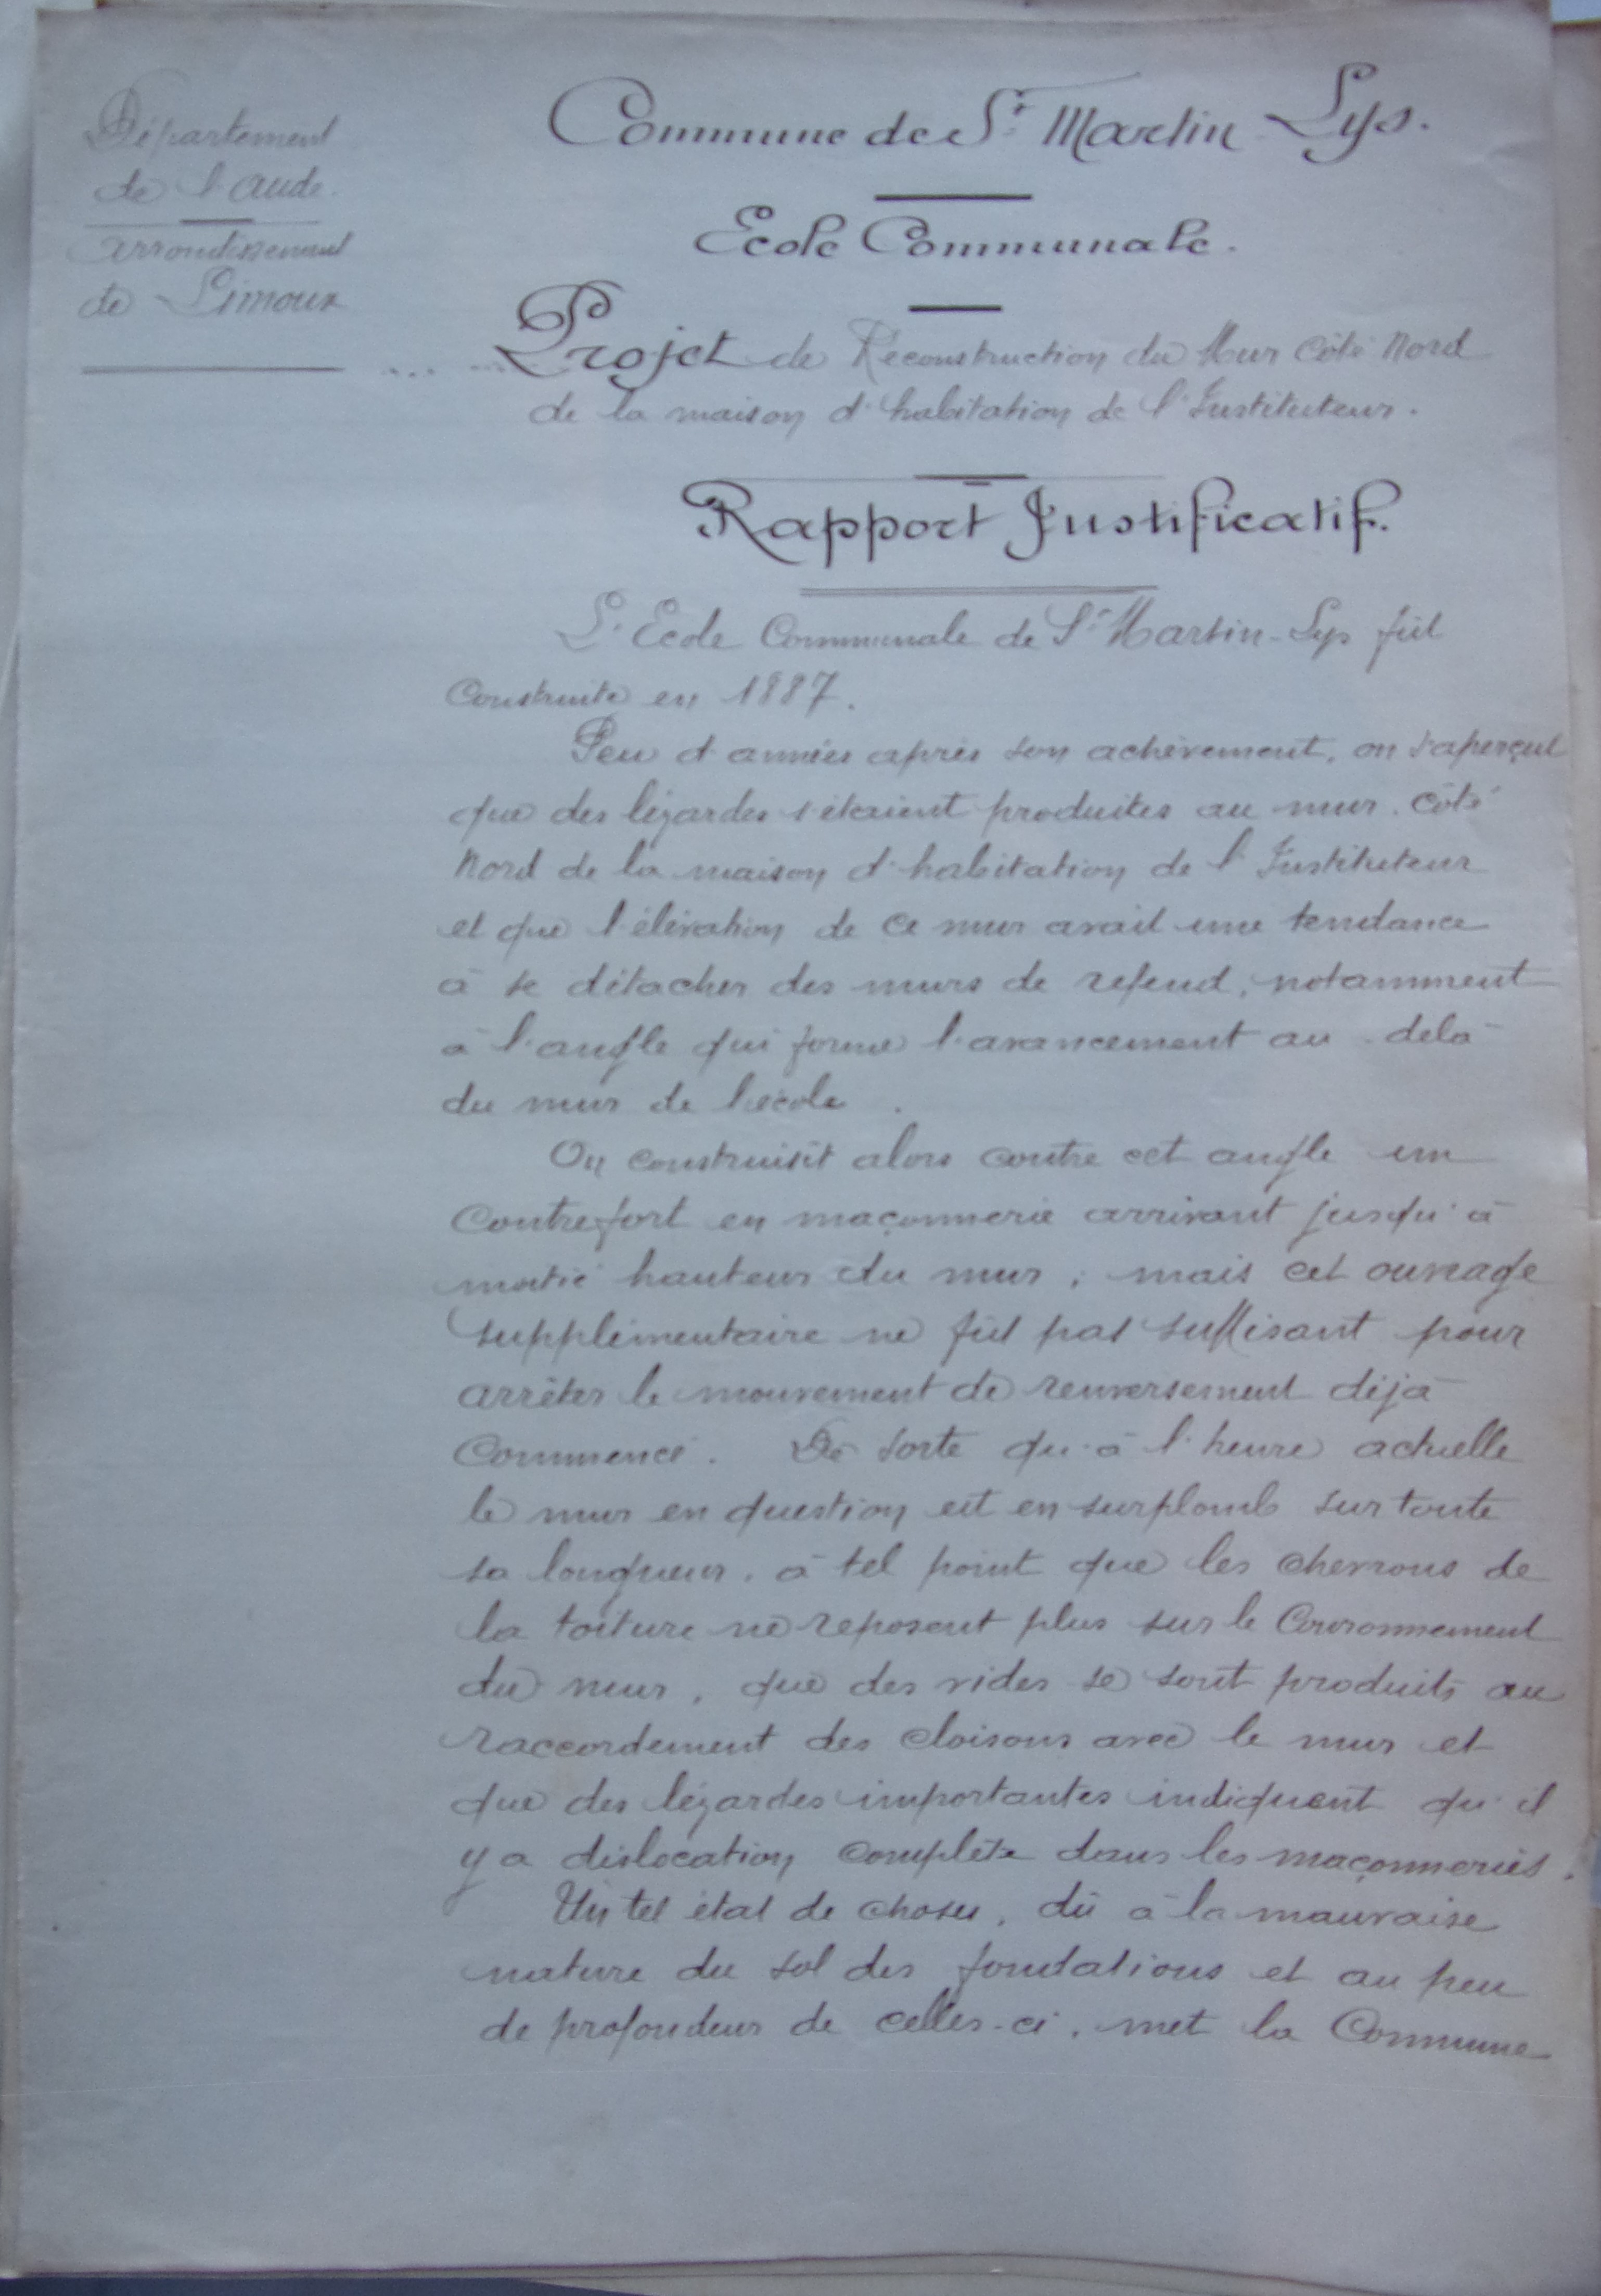 Département
de l'Aude.
Arrondissement
de Limoux
Commune de St Martin-Lys.
Ecole Communale.
Projet de Réconstruction du Mur Côté Nord
de la maison d'habitation de l'Instituteur.
Rapport Justificatif.
L'Ecole Communale de St Martin-Lys fût
Construite en 1887.
Peu d'années après son achèvement, on s'aperçut
que des lézardes s'étaient produites au mur côté
Nord de la maison d'habitation de l'Instituteur
et que l'élévation de ce mur avait une tendance
à se détacher des murs de refend, notamment
à l'angle qui forme l'avancement au-delà
du mur de l'école.
On construisit alors contre cet angle un
Contrefort en maçonnerie arrivant jusqu'à
moitié hauteur du mur, mais cet ouvrage
supplémentaire ne fût pas suffisant pour
arrêter le mouvement de renversement déjà
Commencé. De sorte qu'à l'heure actuelle
le mur en question est en surplomb sur toute
sa longueur, à tel point que les chevrons de
la toiture ne reposent plus sur le Couronnement
du mur, que des vides se sont produits au
raccordement des cloisons avec le mur et
que des lézardes importantes indiquent qu'il
y a dislocation complète dans les maçonneries.
Un tel état de choses, dû à la mauvaise
nature du sol des fondations et au peu
de profondeur de celles-ci, met la Commune